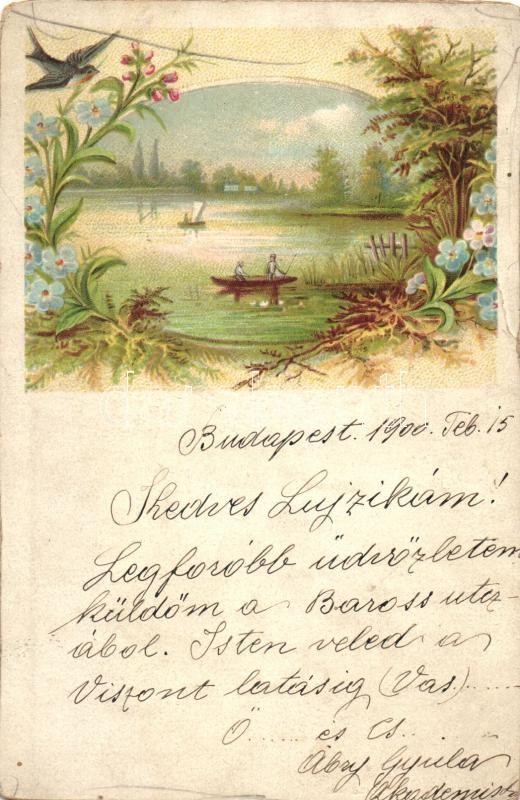 Budapest. 1900. Feb. 15
Kedves Lujzikám!
Legforóbb üdvözletem
küldöm a Baross utcz-
ából. Isten veled a
Viszont latásig (Vas.).......
Ö...... és Cs...
Ábry Gyula
Akademista